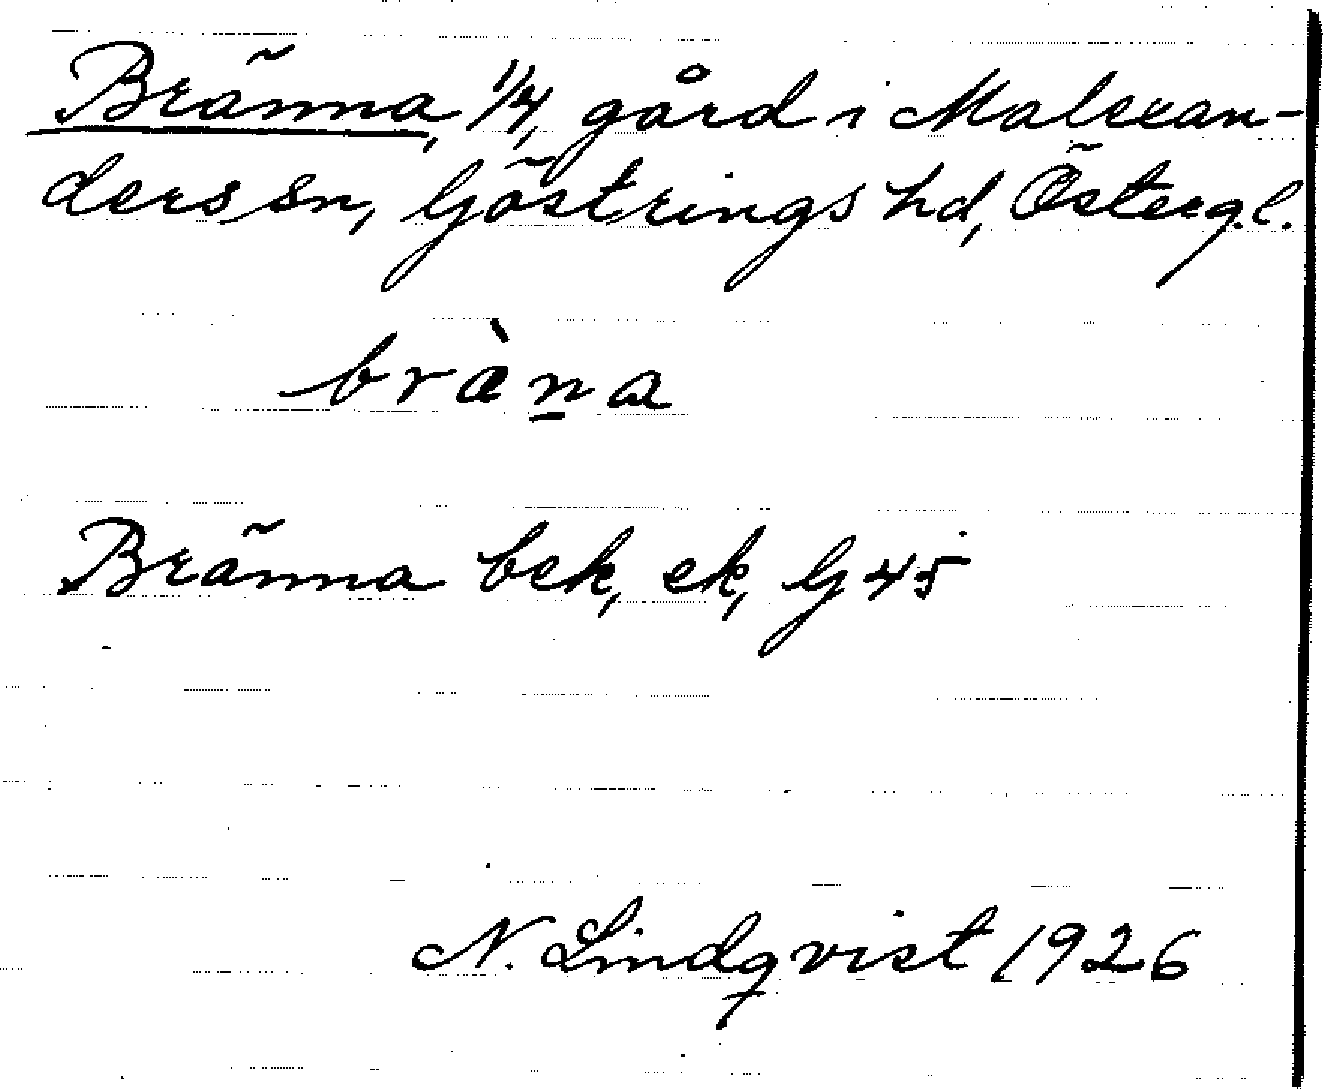 Bränna, 1/4, gård i Malexan-
ders sn, Göstrings hd, Östergl.
bræ̀n̲a
Bränna bek, ek, G 45
N. Lindqvist 1926